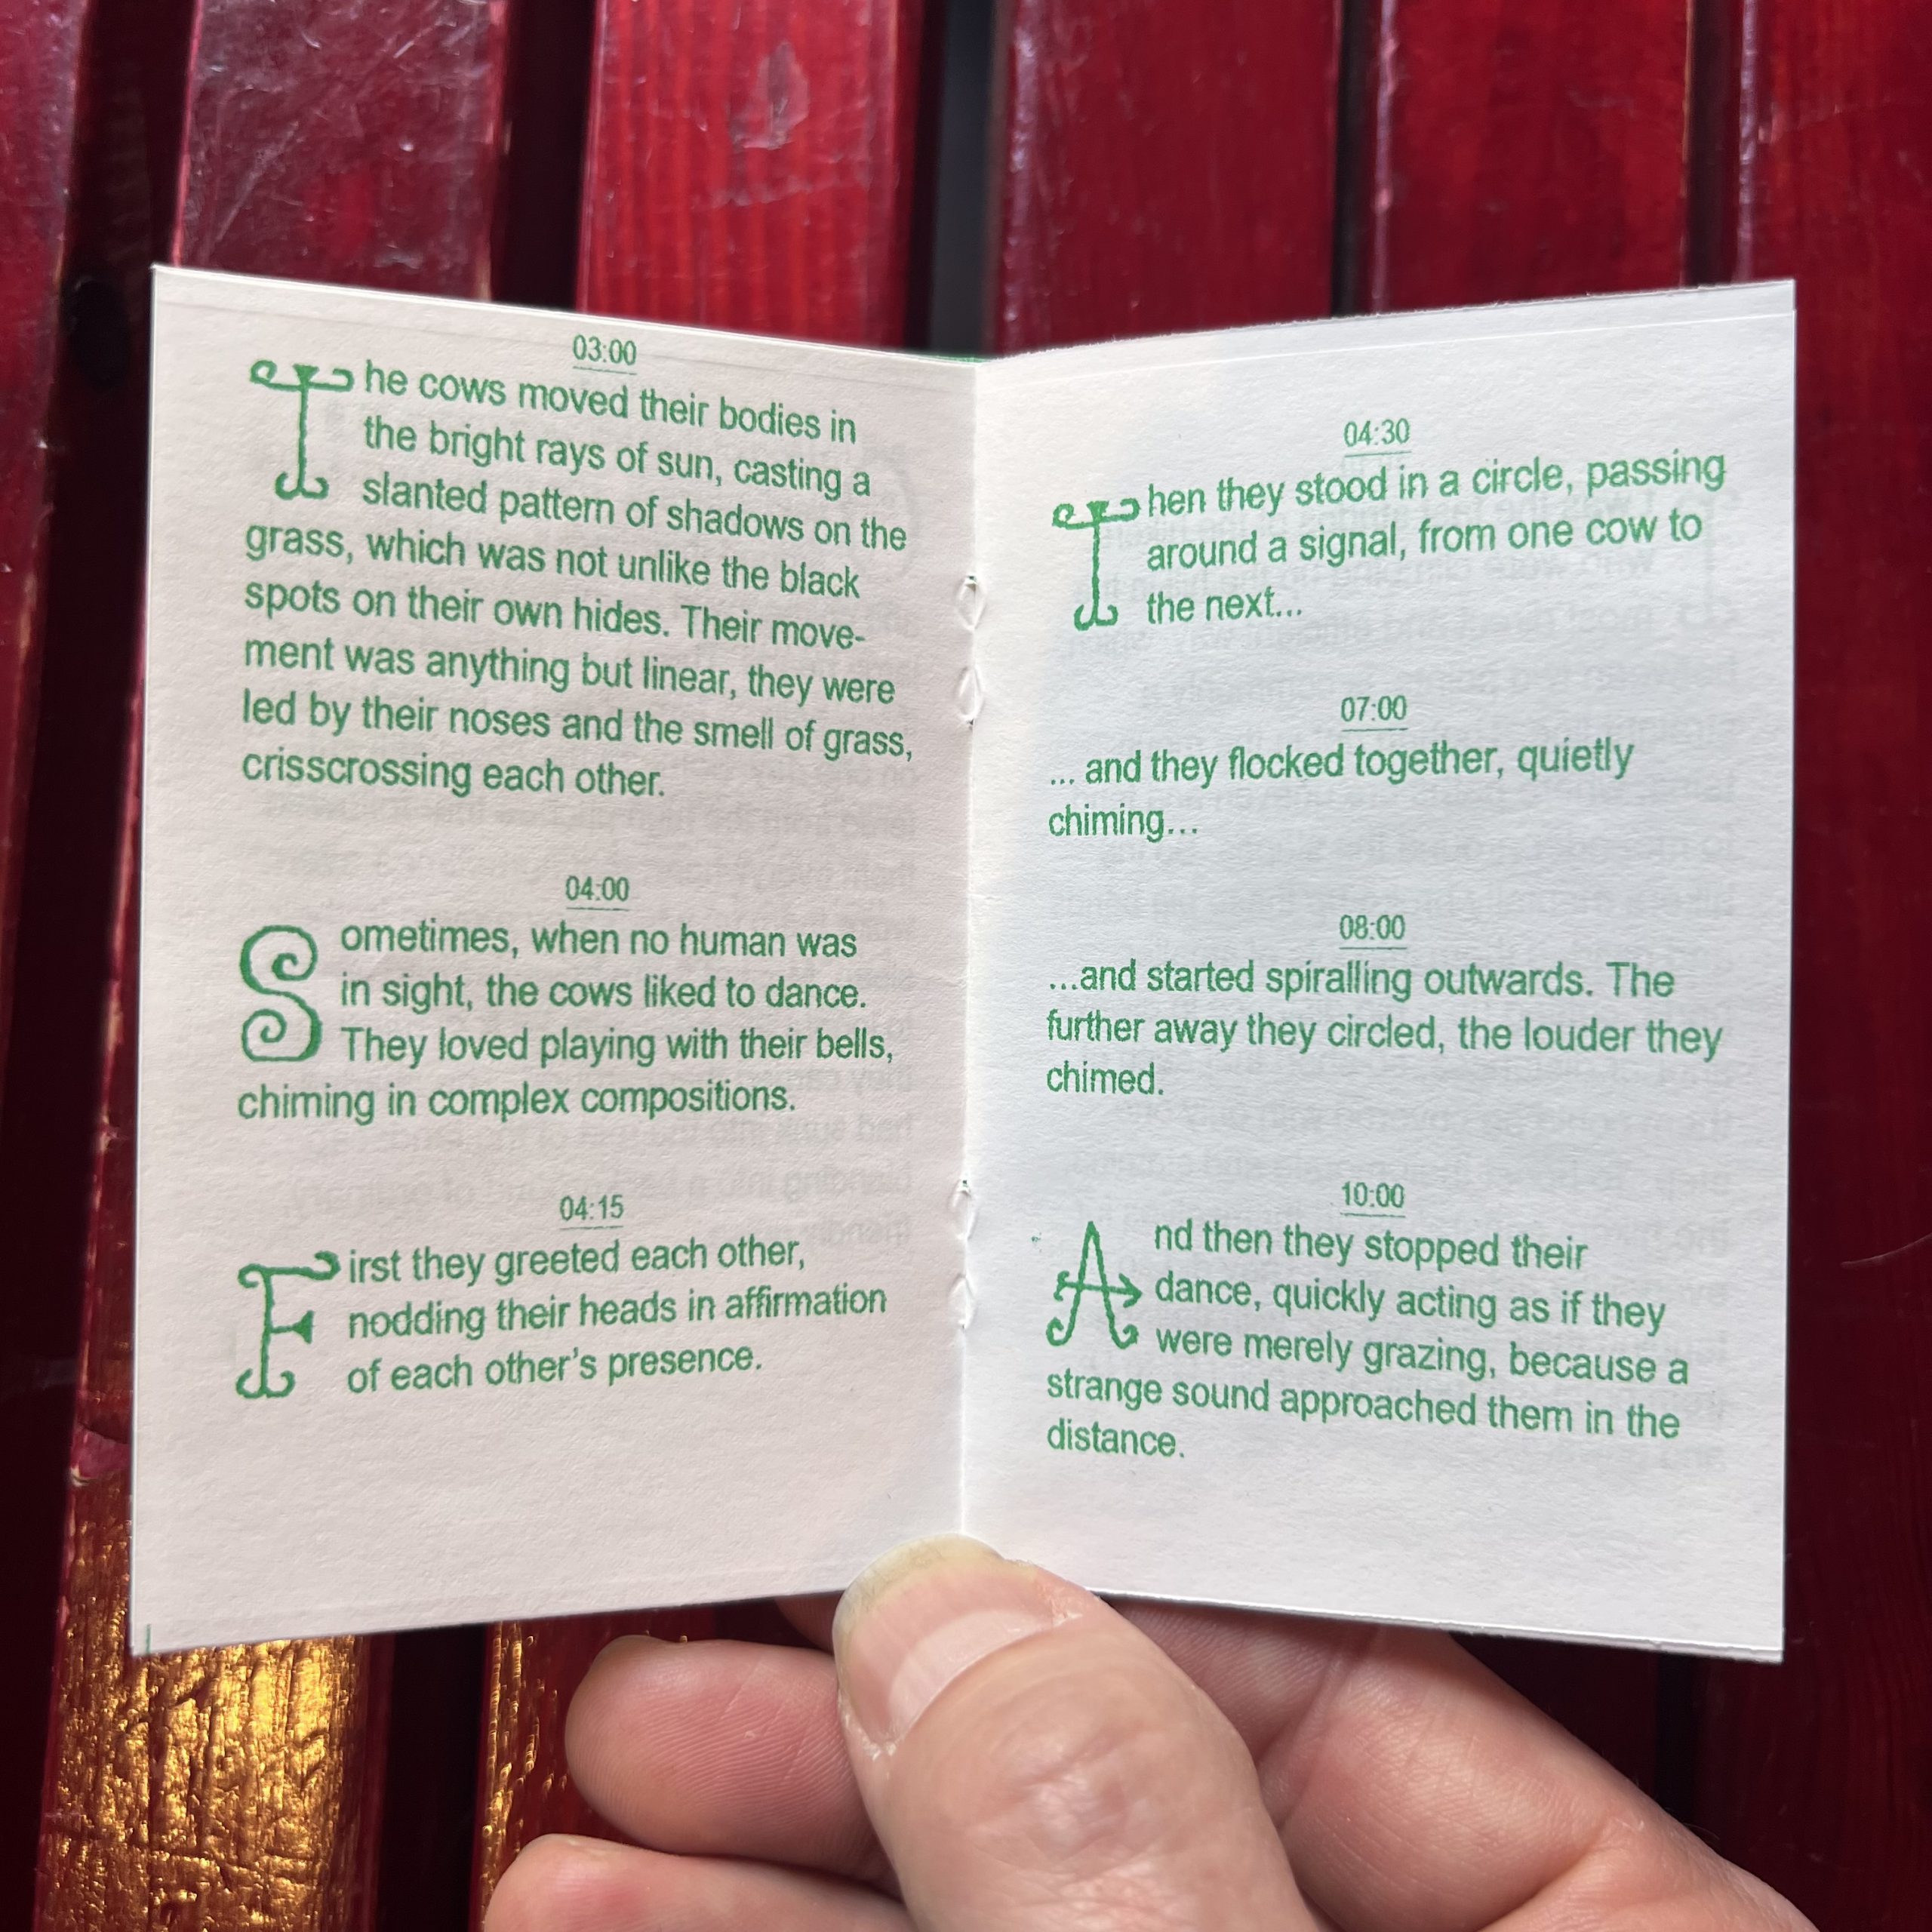 03:00
The cows moved their bodies in
the bright rays of sun, casting a
slanted pattern of shadows on the
grass, which was not unlike the black
spots on their own hides. Their move-
ment was anything but linear, they were
led by their noses and the smell of grass,
crisscrossing each other.
04:00
Sometimes, when no human was
in sight, the cows liked to dance.
They loved playing with their bells,
chiming in complex compositions.
04:15
First they greeted each other,
nodding their heads in affirmation
of each other's presence.
04:30
Then they stood in a circle, passing
around a signal, from one cow to
the next...
07:00
... and they flocked together, quietly
chiming...
08:00
...and started spiralling outwards. The
further away they circled, the louder they
chimed.
10:00
And then they stopped their
dance, quickly acting as if they
were merely grazing, because a
strange sound approached them in the
distance.